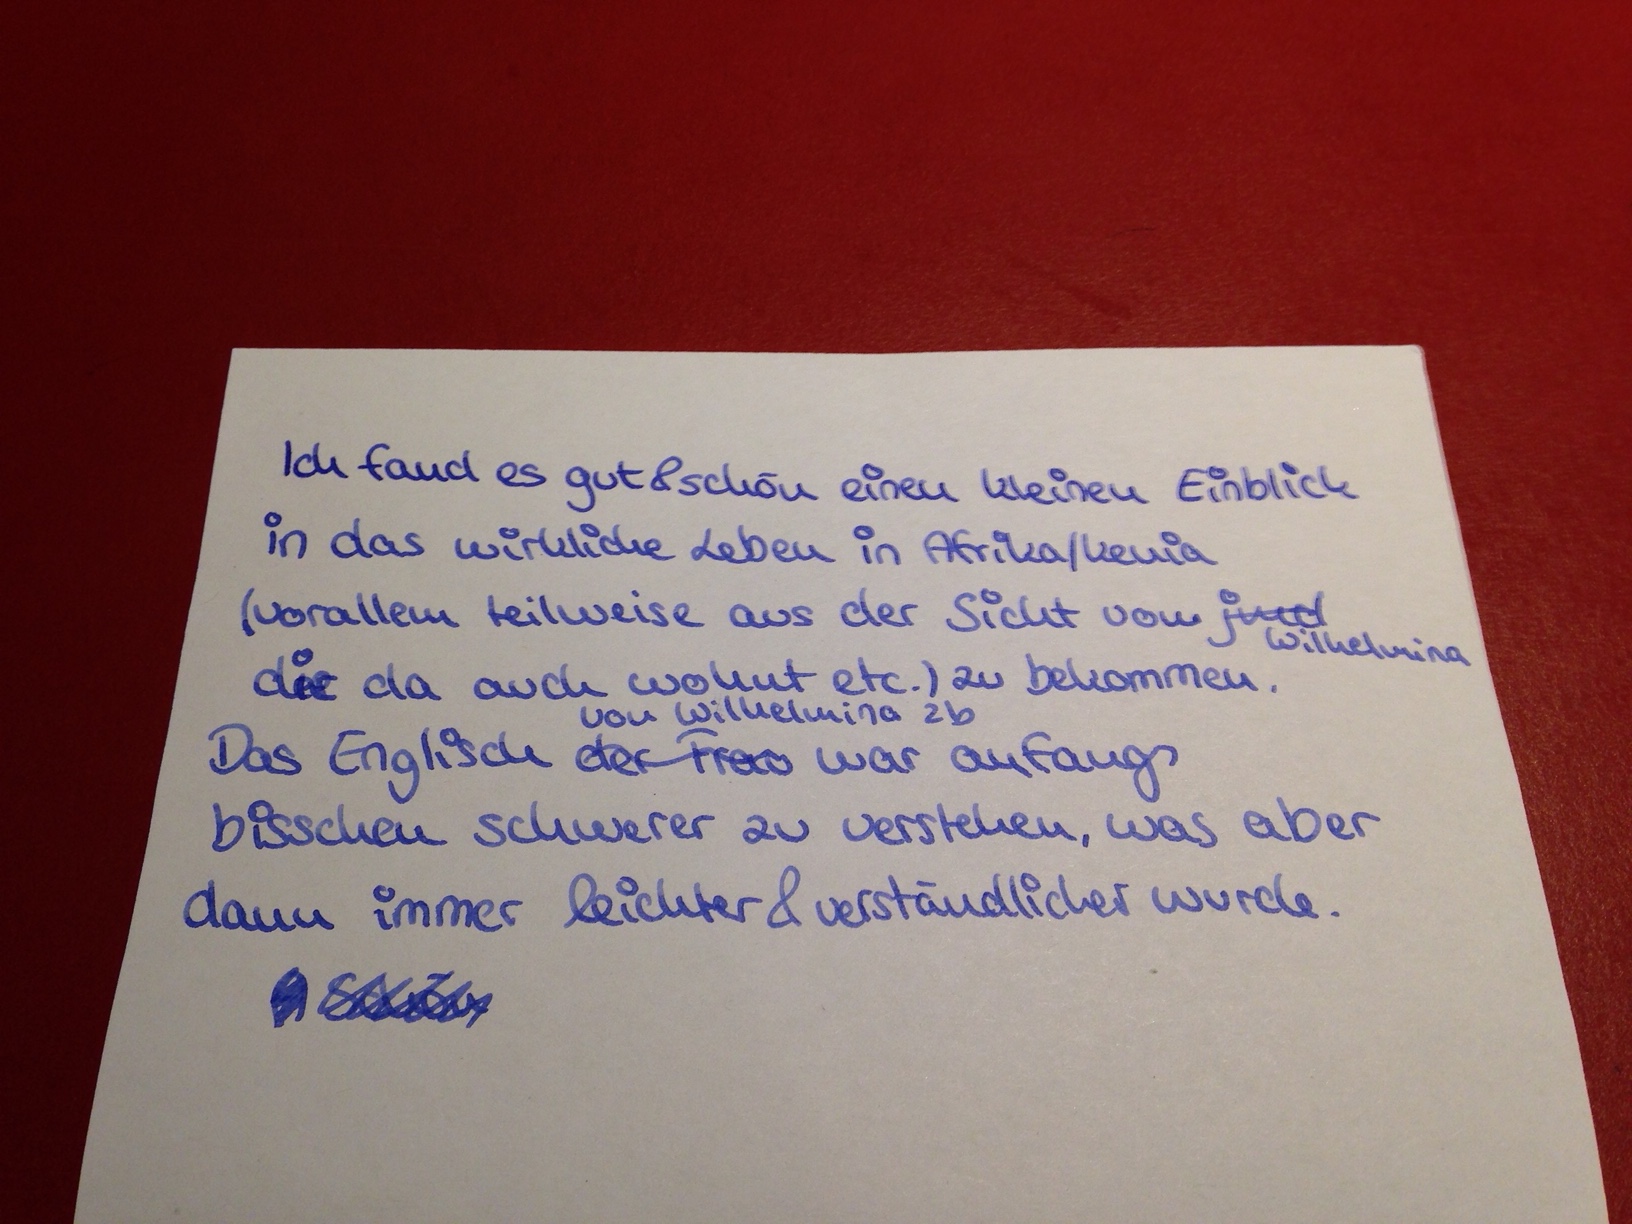 Ich fand es gut & schön einen kleinen Einblick
in das wirkliche Leben in Afrika/Kenia
(vorallem teilweise aus der Sicht von
Wilhelmina
die da auch wohnt etc.) zu bekommen.
von Wilhelmina zb
Das Englisch der Frau war anfangs
bisschen schwerer zu verstehen, was aber
dann immer leichter & verständlicher wurde.